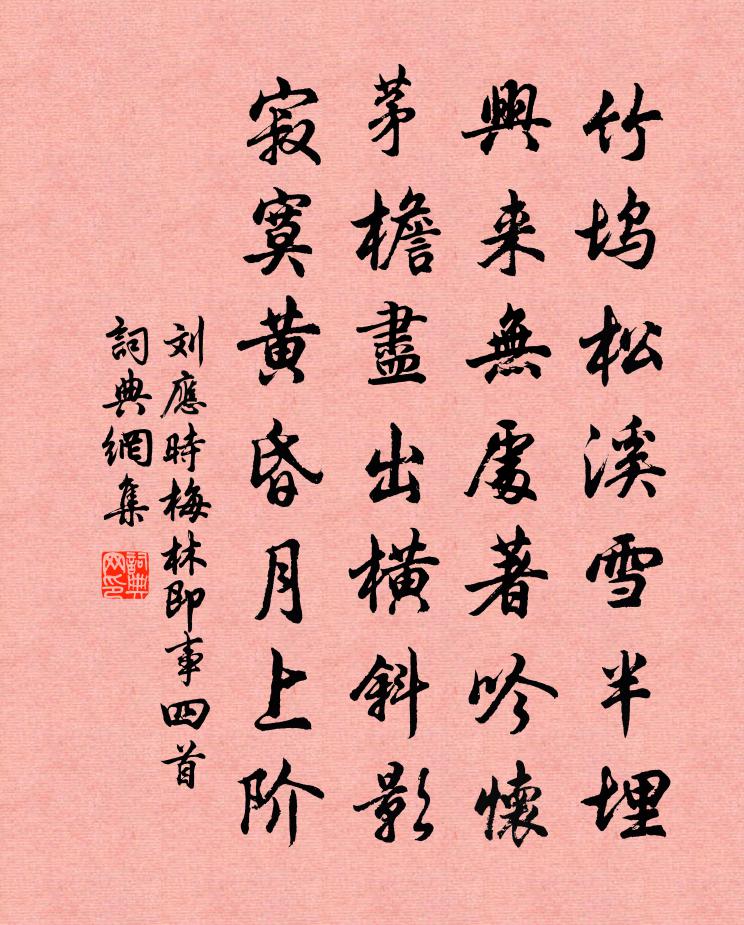 竹坞松溪雪半埋
興来無處著吟懷
茅檐盡出橫斜影
寂寞黄昏月上阶
刘應時梅林即事四首
詞典網集
詞典網印